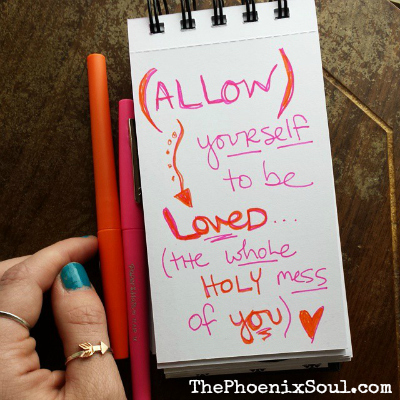 (ALLOW)
yourself
to be
LOVED...
(THE WHOLE
HOLY MESS
of you)
ThePhoenixSoul.com